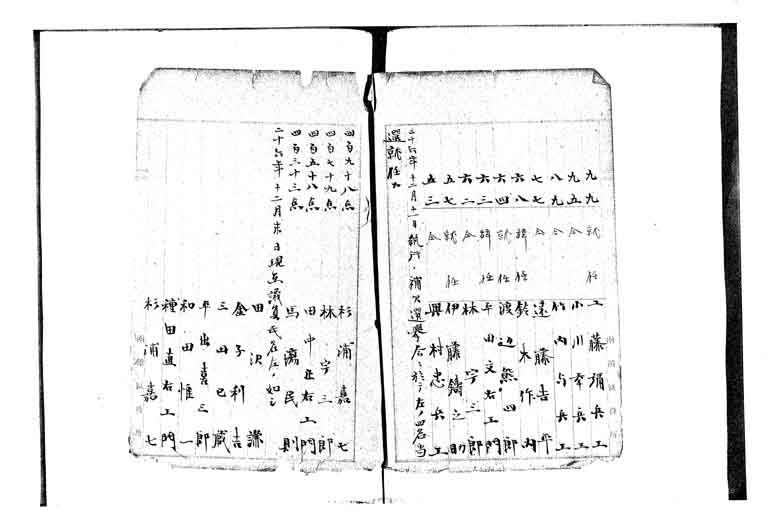 九九 就任 工藤彌兵エ
九五 仝 小川幸兵エ
八九 仝 竹内与兵エ
七七 仝 遠藤吉平
六八 辞任 鈴木作内
六四 就任 渡辺熊四郎
六三 辞任 平田文右エ門
六二 仝 林宇三郎
五七 就任 伊藤鋳之助
五三 仝 興村忠兵エ
二十六年十二月十一日執行ノ補欠選挙会ニ於テ左ノ四名当
選就任ス
四百九十八点 杉浦嘉七
四百七十九点 林宇三郎
四百五十八点 田中正右エ門
四百三十三点 馬場民則
二十六年十二月末日現在議員氏名左ノ如シ
田沢謙
金子利吉
三田巳蔵
平出喜三郎
和田惟一
種田直右エ門
杉浦嘉七